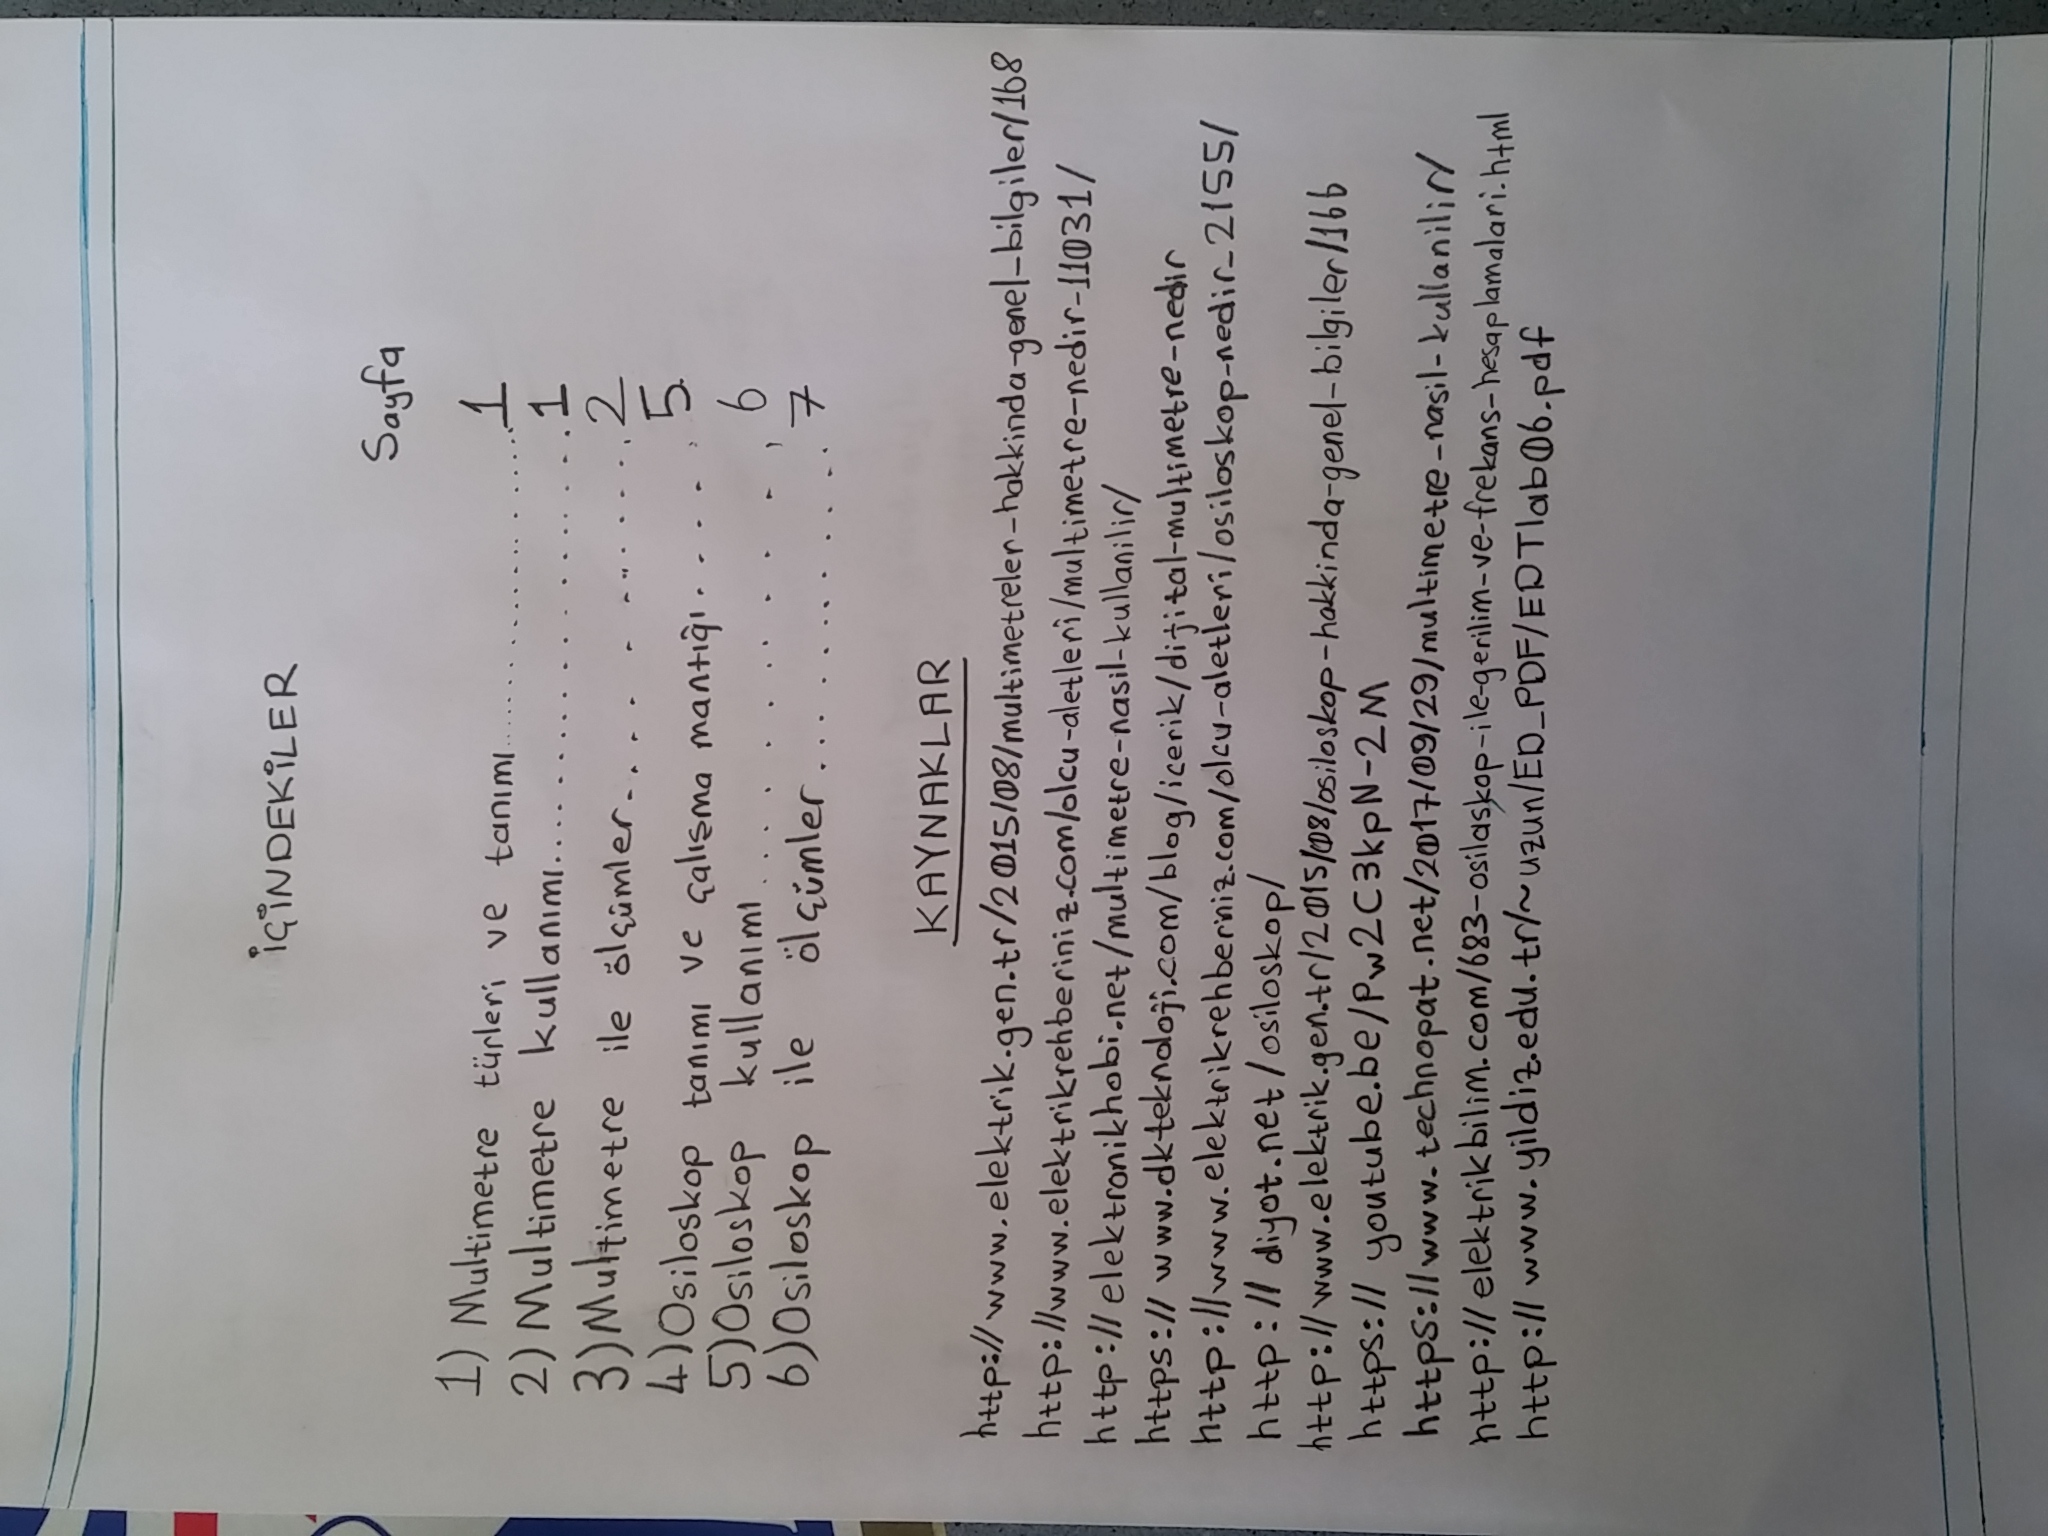 İÇİNDEKİLER
Sayfa
1) Multimetre türleri ve tanımı.................... 1
2) Multimetre kullanımı.................... 1
3) Multimetre ile ölçümler................ 2
4) Osiloskop tanımı ve çalışma mantığı...... 5
5) Osiloskop kullanımı............ 6
6) Osiloskop ile ölçümler............ 7
KAYNAKLAR
http://www.elektrik.gen.tr/2015/08/multimetreler-hakkinda-genel-bilgiler/168
http://www.elektrikrehberiniz.com/olcu-aletleri/multimetre-nedir-11031/
http://elektronikhobi.net/multimetre-nasil-kullanilir/
https://www.dkteknoloji.com/blog/icerik/dijital-multimetre-nedir
http://www.elektrikrehberiniz.com/olcu-aletleri/osiloskop-nedir-2155/
http://diyot.net/osiloskop/
http://www.elektrik.gen.tr/2015/08/osiloskop-hakkinda-genel-bilgiler/166
https://youtube.be/Pw2C3kpN-2M
https://www.technopat.net/2017/09/29/multimetre-nasil-kullanilir/
http://elektrikbilim.com/683-osilaskop-ile-gerilim-ve-frekans-hesaplamalari.html
http://www.yildiz.edu.tr/~uzun/ED_PDF/EDTlab06.pdf